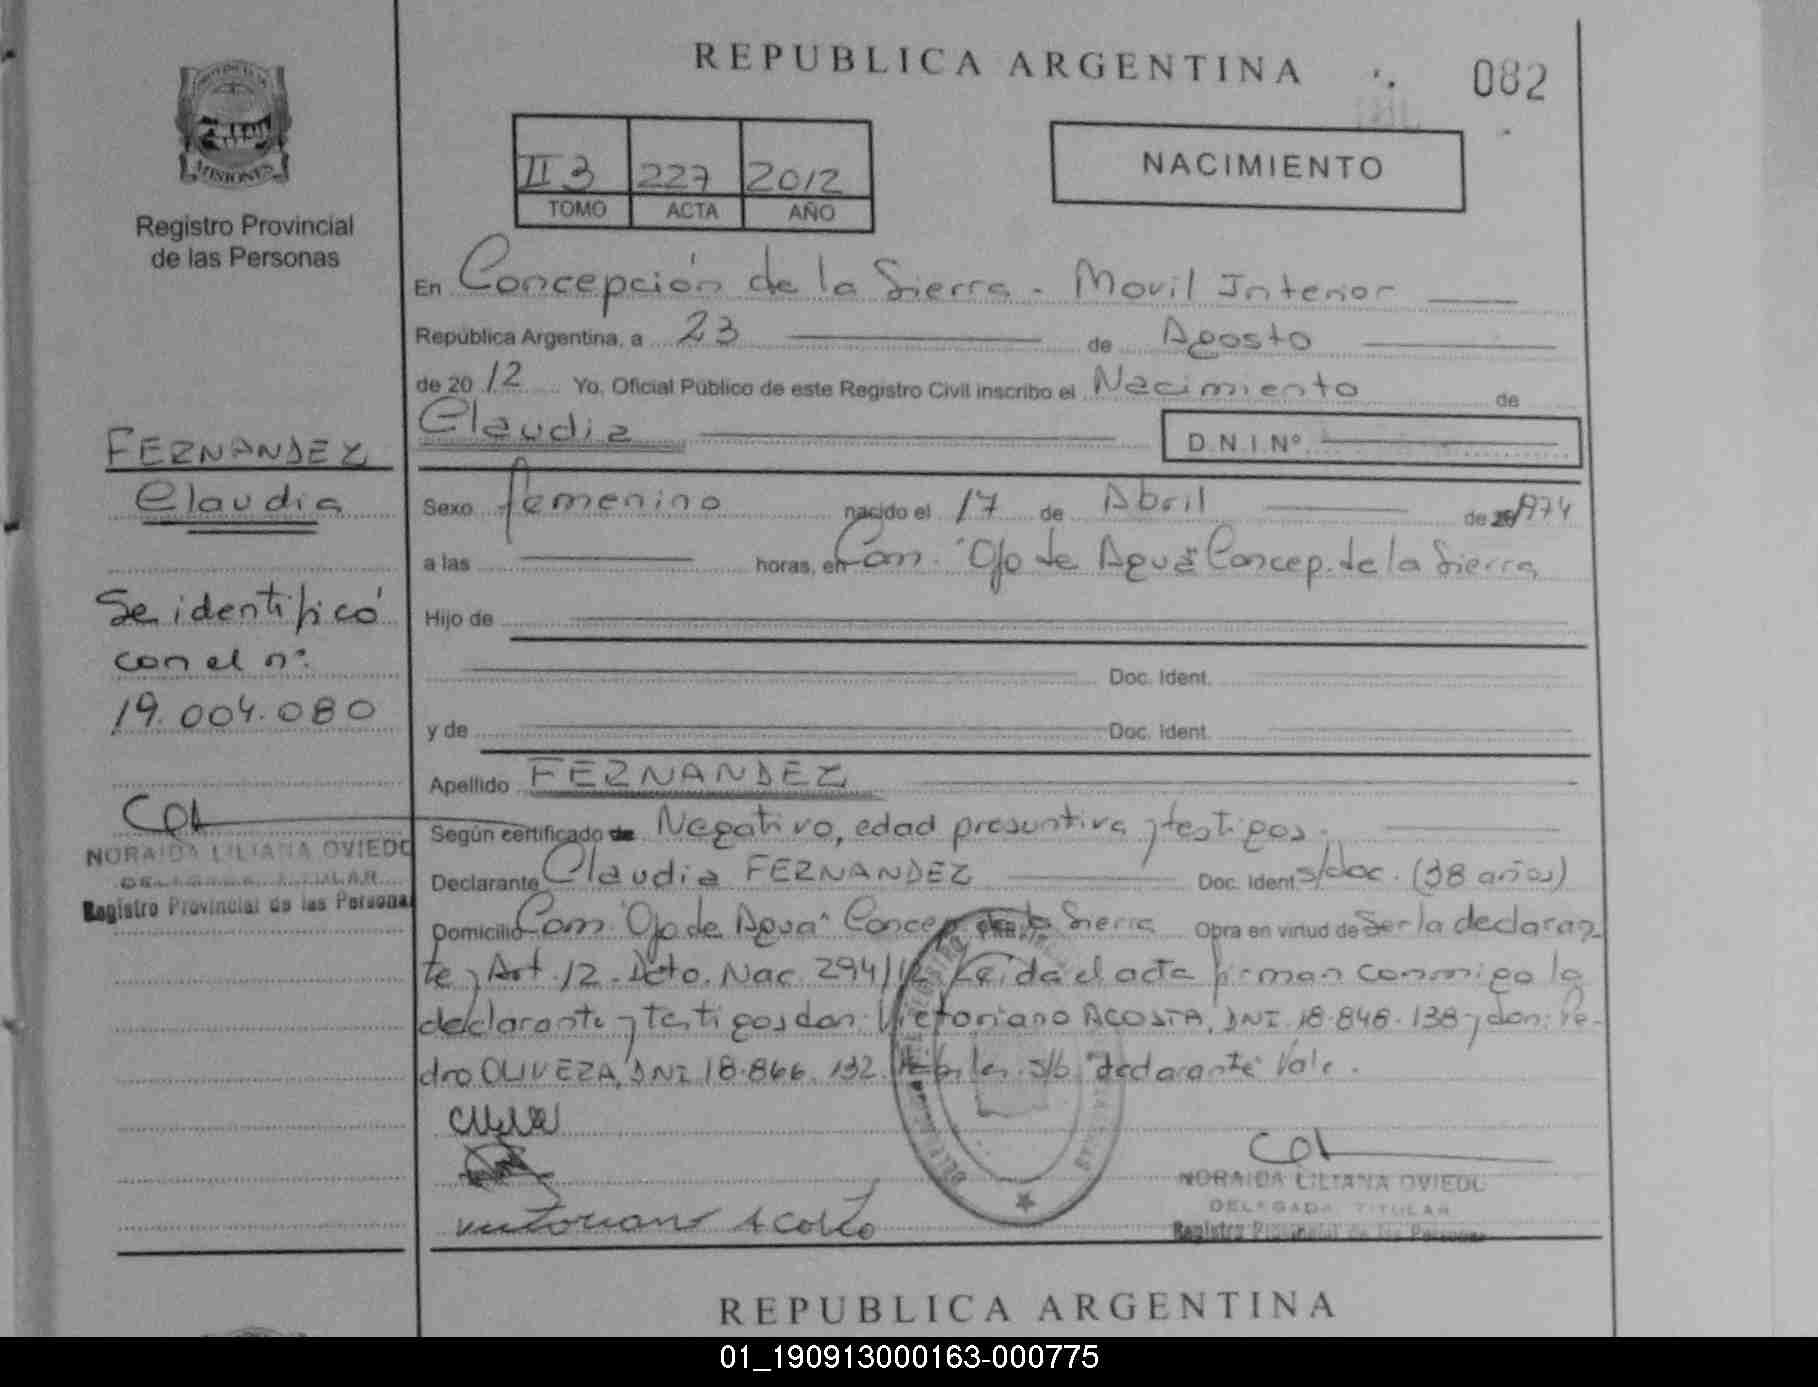 REPUBLICA ARGENTINA
082
MISIONES
Registro Provincial
de las Personas
II 3 227 2012
TOMO ACTA AÑO
NACIMIENTO
En Concepción de la Sierra - Movil Interior
República Argentina, a 23 de Agosto
de 20 12 Yo, Oficial Público de este Registro Civil inscribo el Nacimiento de
Claudia
D.N.I.Nº
FERNANDEZ
Claudia
Se identificó
con el nº.
19.004.080
NORAIDA LILIANA OVIEDO
DELEGADA TITULAR
Registro Provincial de las Personas
Sexo femenino nacido el 17 de Abril de 1974
a las horas, en Com. "Ojo de Agua" Concep. de la Sierra
Hijo de
Doc. Ident.
y de Doc. Ident.
Apellido FERNANDEZ
Según certificado de Negativo, edad presuntiva y testigos.
Declarante Claudia FERNANDEZ Doc. Ident s/doc. (38 años)
Domicilio Com. "Ojo de Agua" Concep de la Sierra Obra en virtud de ser la declaran-
te y Art. 12 - Dcto. Nac. 294/12 Leída el acta firman conmigo la
declarante y testigos don Victoriano ACOSTA, DNI 18.848.138 y don: Pe-
dro OLIVERA, DNI 18.866.132. s/b "declarante" Vale.
Victoriano Acosta
NORAIDA LILIANA OVIEDO
DELEGADA TITULAR
Registro Provincial de las Personas
REPUBLICA ARGENTINA
01_190913000163-000775